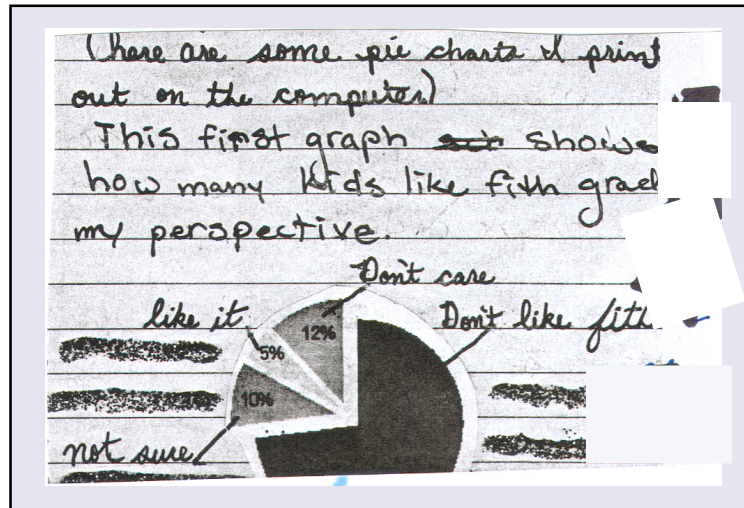 (here are some pie charts I print
out on the computer)
This first graph shows
how many kids like fith grad
my perspective.
Don't care
like it
Don't like fith
12%
5%
10%
not sure